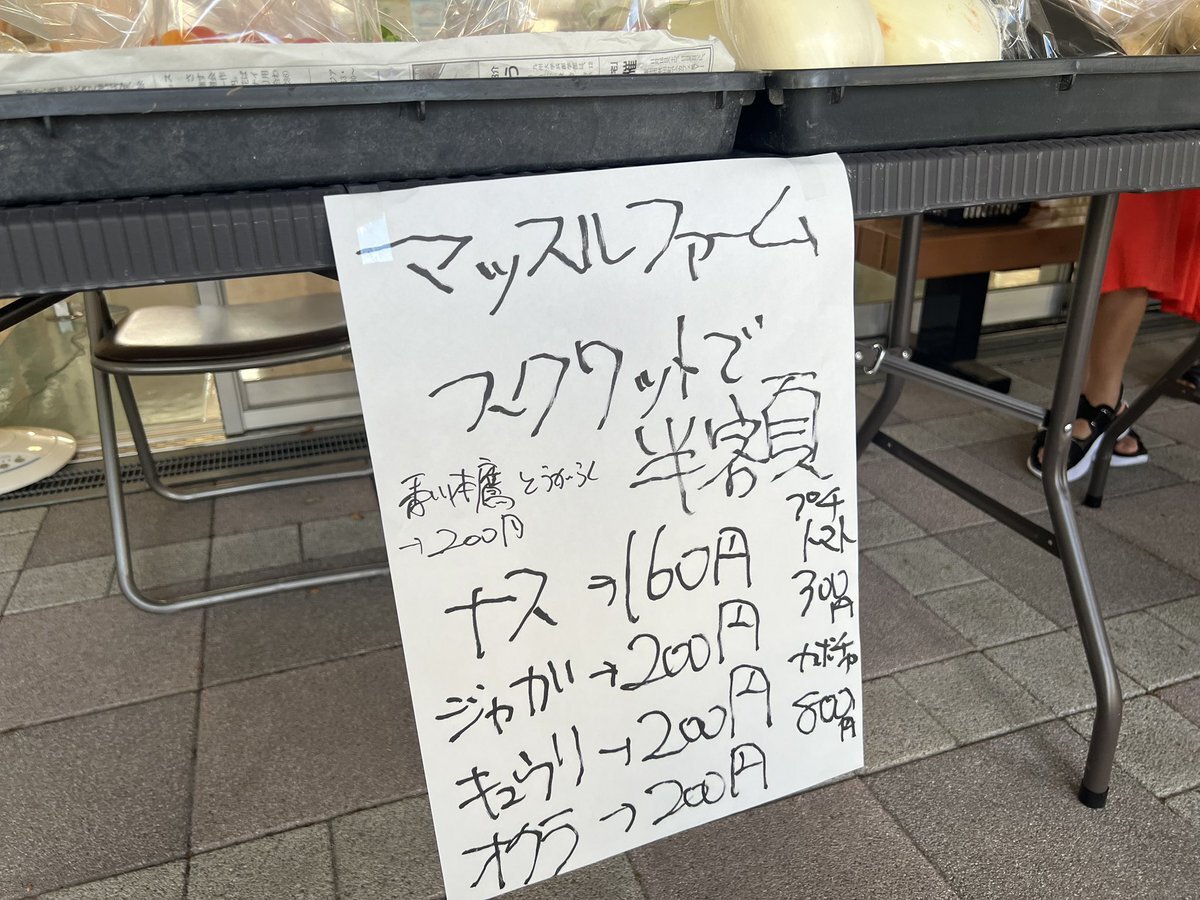 マッスルファーム
スクワットで
半額
香川本鷹 とうがらし
→200円
ナス →160円
ジャガ→200円
キュウリ→200円
オクラ→200円
プチ
トマト
300
円
カボチャ
800
円